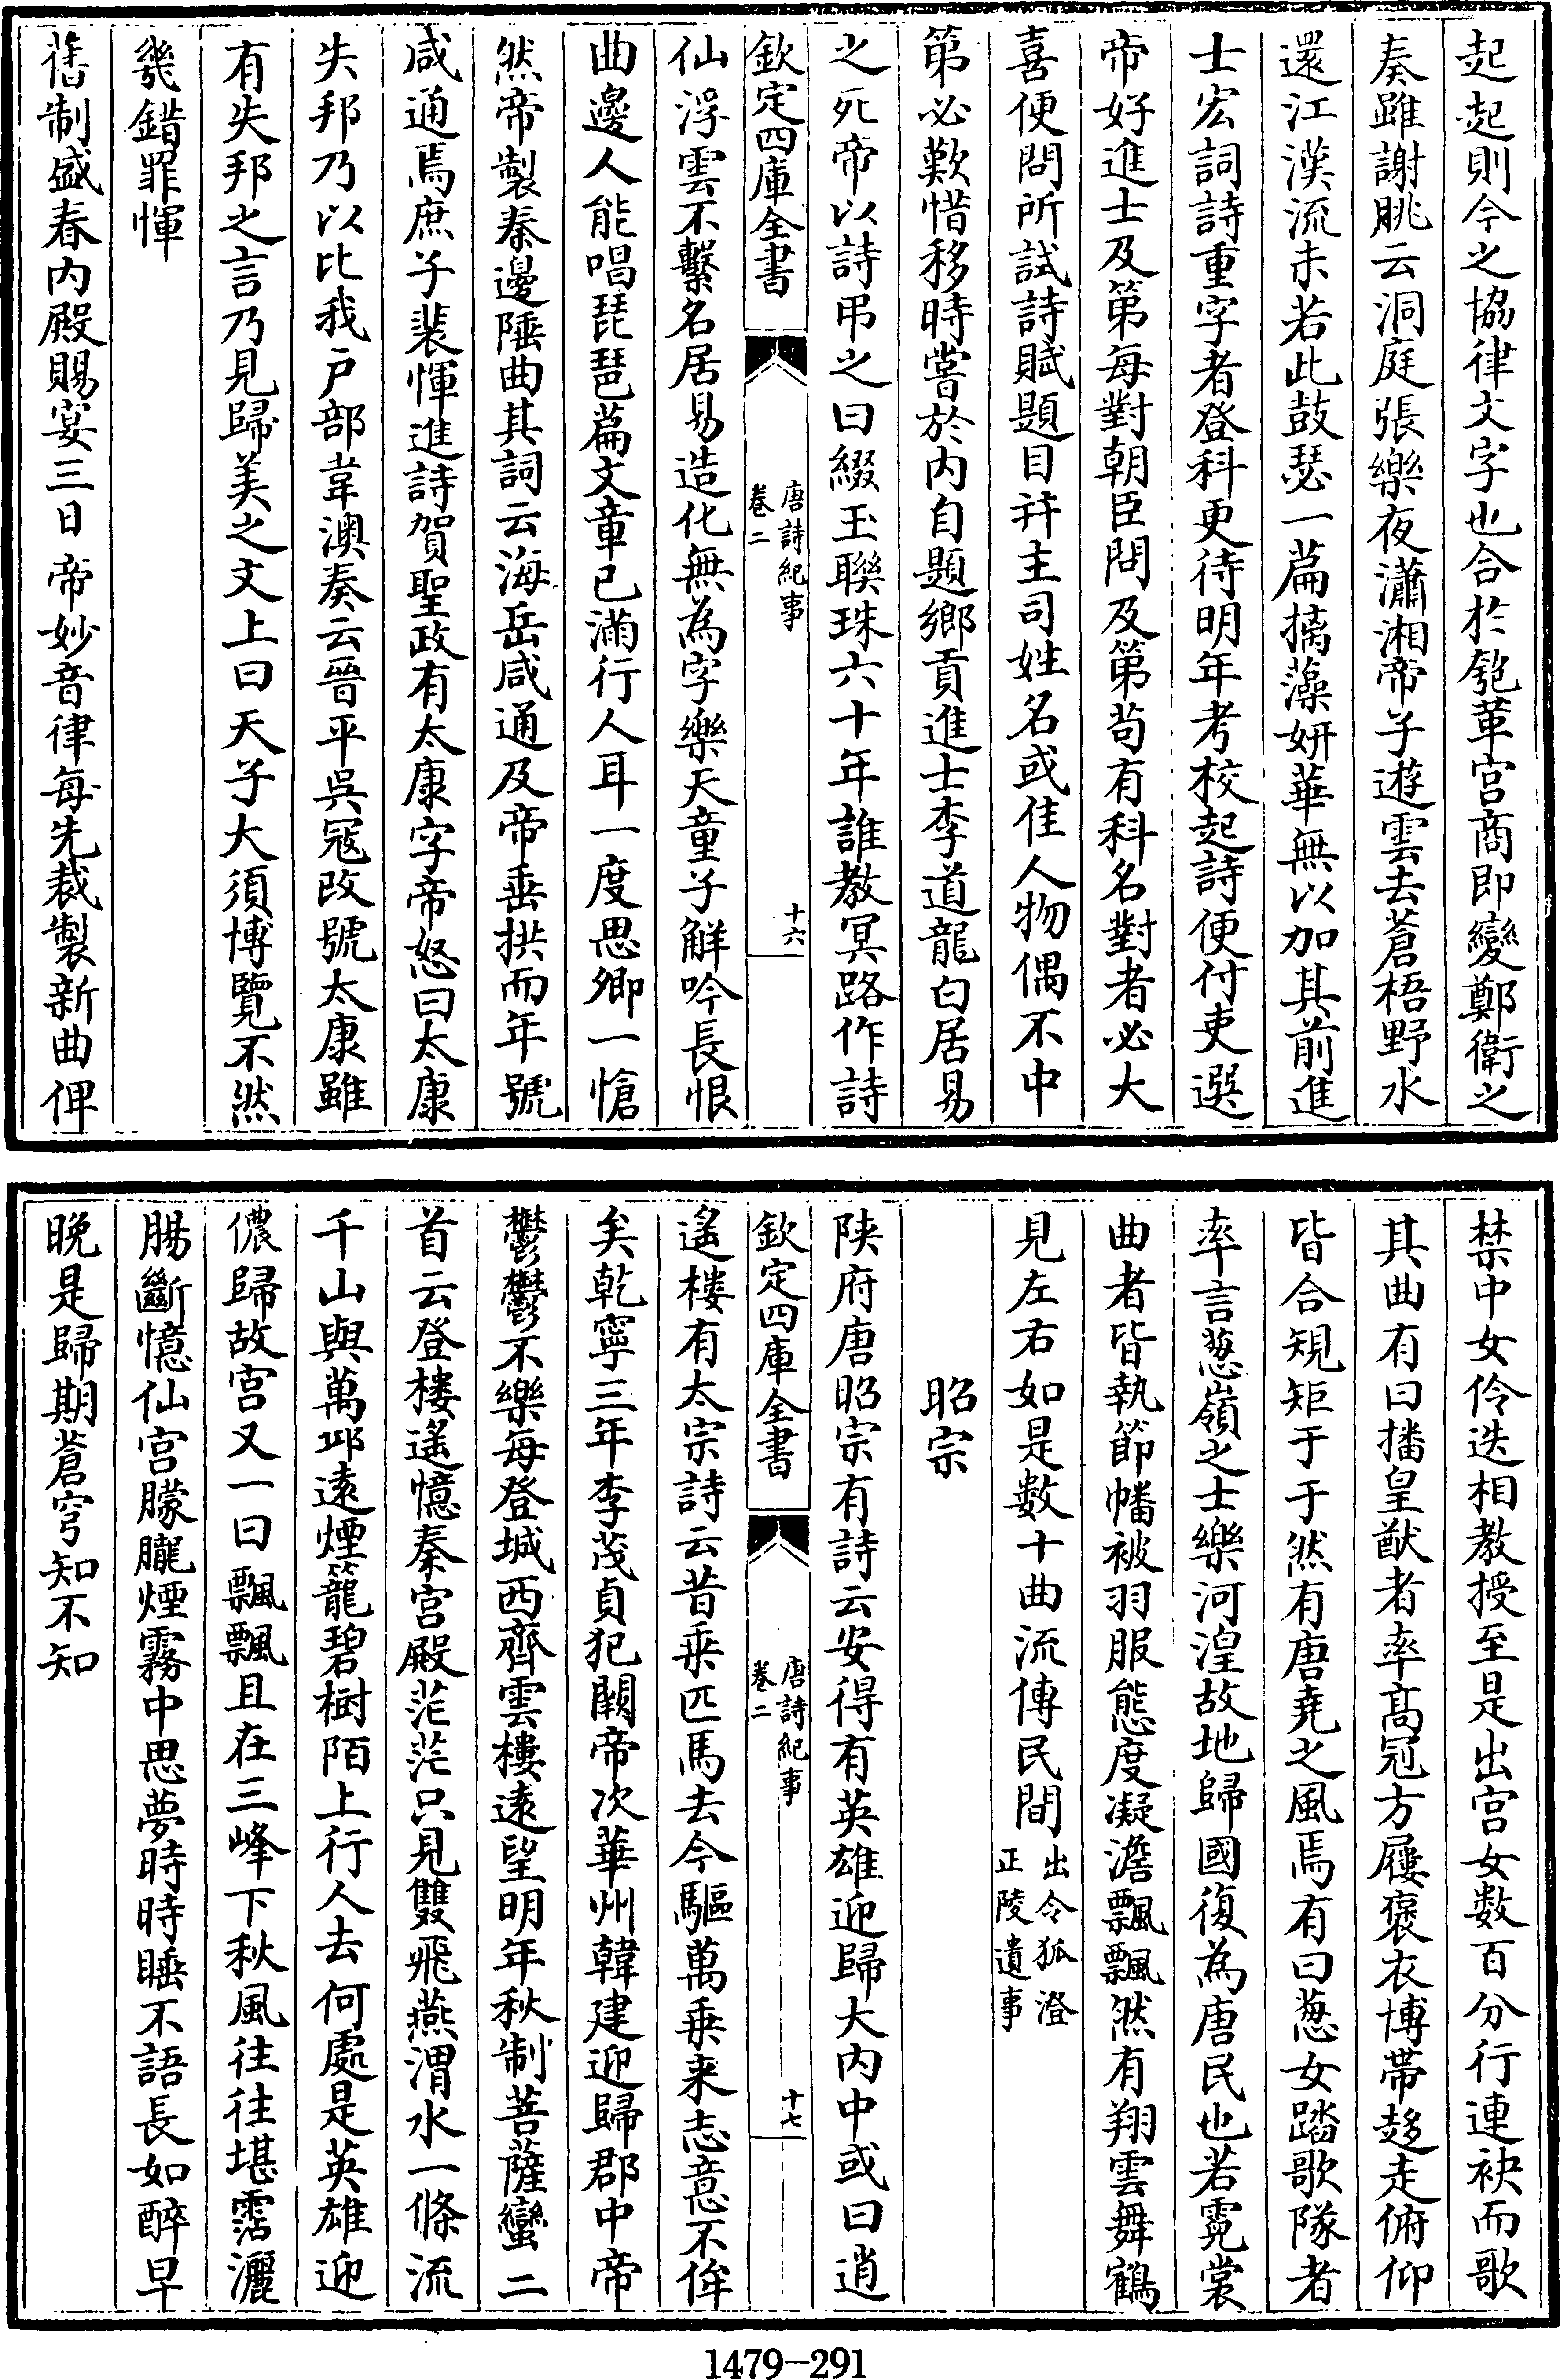 起起則今之協律文字也合於匏革宫商即變鄭衛之
奏雖謝朓云洞庭張樂夜瀟湘帝子遊雲去蒼梧野水
還江漢流未若此鼓瑟一篇摛藻妍華無以加其前進
士宏詞詩重字者登科更待明年考校起詩便付吏選
帝好進士及第每對朝臣問及第茍有科名對者必大
喜便問所試詩賦題目幷主司姓名或佳人物偶不中
第必歎惜移時嘗於内自題鄉貢進士李道龍白居易
之死帝以詩弔之曰綴玉聯珠六十年誰教冥路作詩
欽定四庫全書
唐詩紀事
卷二
十六
仙浮雲不繫名居易造化無為字樂天童子解吟長恨
曲邊人能唱琵琶篇文章已滿行人耳一度思卿一愴
然帝製泰邊陲曲其詞云海岳咸通及帝垂拱而年號
咸通焉庶子裴惲進詩賀聖政有太康字帝怒曰太康
失邦乃以比我户部韋澳奏云晉平吳冦改號太康雖
有失邦之言乃見歸美之文上曰天子大須博覽不然
幾錯罪惲
舊制盛春内殿賜宴三日帝妙音律每先裁製新曲俾
禁中女伶迭相教授至是出宫女数百分行連袂而歌
其曲有曰播皇猷者率髙冠方屨褒衣博帶趍走俯仰
皆合規矩于于然有唐堯之風焉有曰葱女踏歌隊者
率言葱嶺之士樂河湟故地歸國復為唐民也若霓裳
曲者皆執節幡被羽服態度凝澹飄飄然有翔雲舞鶴
見左右如是數十曲流傳民間
出令狐澄
正陵遺事
昭宗
陜府唐昭宗有詩云安得有英雄迎歸大内中或曰逍
欽定四庫全書
唐詩紀事
卷二
十七
遥樓有太宗詩云昔乘匹馬去今驅萬乗来志意不侔
矣乾寧三年李茂貞犯闕帝次華州韓建迎歸郡中帝
鬱鬱不樂每登城西齊雲樓遠望明年秋制菩薩蠻二
首云登樓遥憶秦宫殿茫茫只見雙飛燕渭水一條流
千山與萬邱遠煙籠碧樹陌上行人去何處是英雄迎
儂歸故宫又一曰飄飄且在三峰下秋風往往堪霑灑
腸斷憶仙宫朦朧煙霧中思夢時時睡不語長如醉早
晩是歸期蒼穹知不知
1479-291